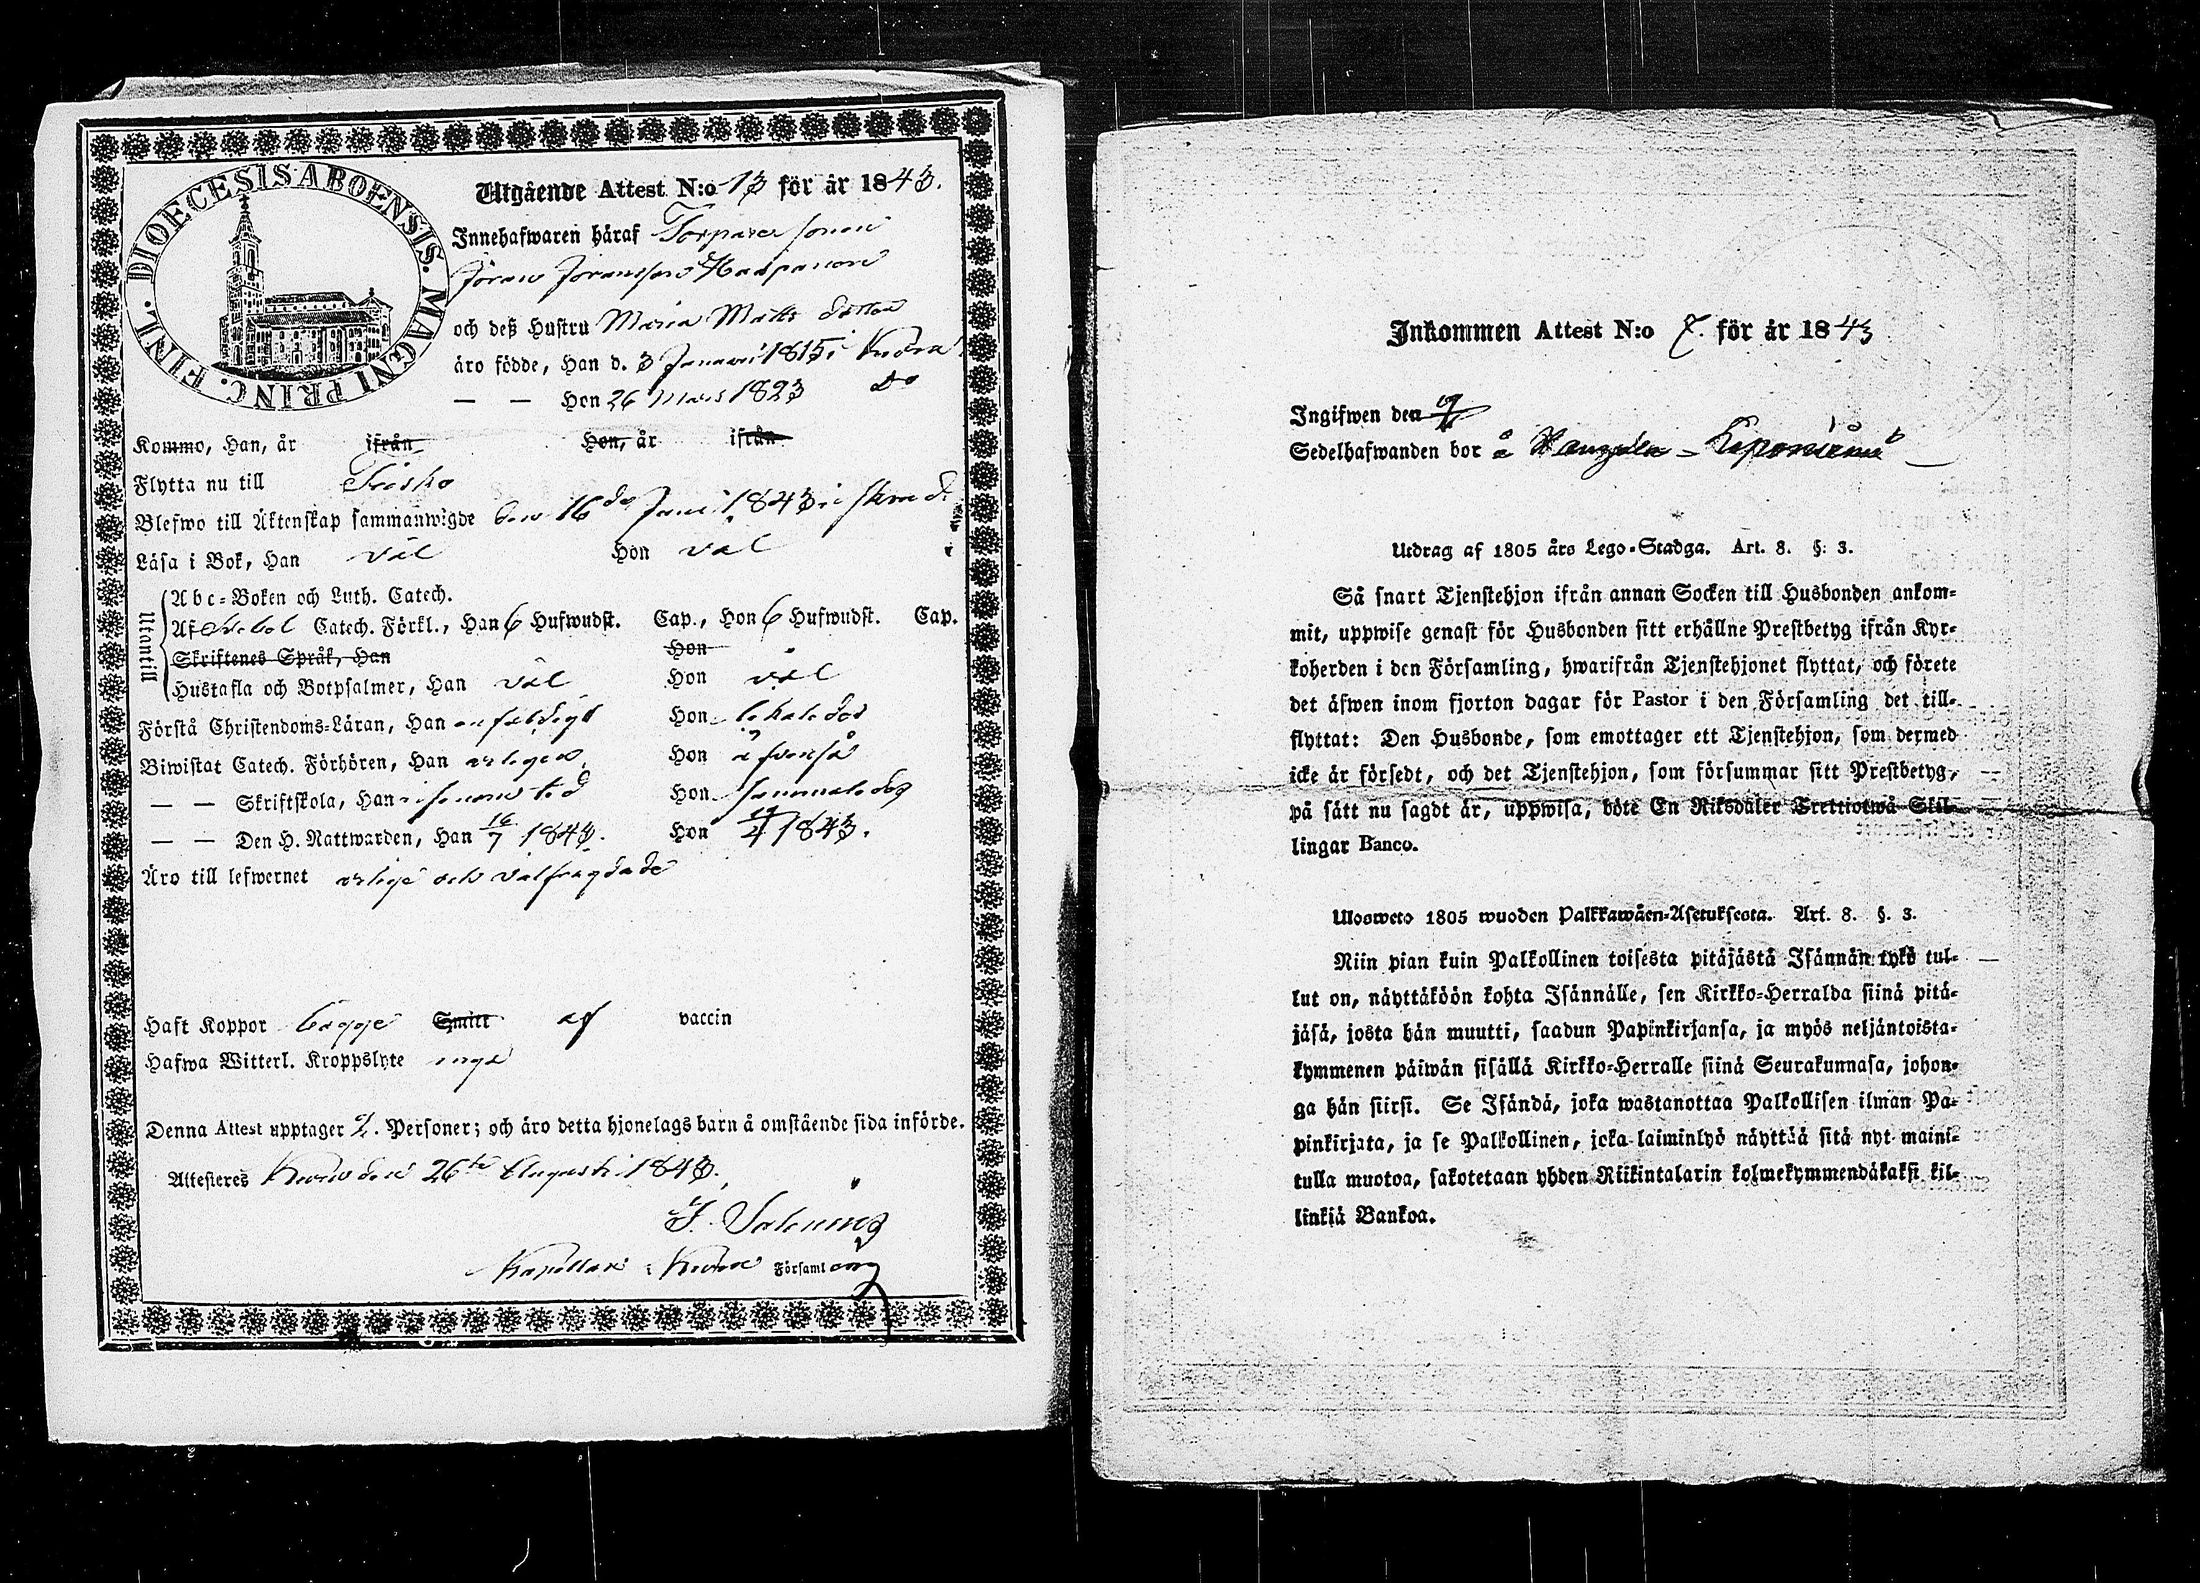 DIOECESIS ABOENSIS. MAGNI PRINC. FINL.
Utgående Attest N:o 13 för år 1843.
Innehafwaren häraf Torparesonen
Jöran Jöransson Haapanen
och deß Hustru Maria Matts dotter
äro födde, Han d. 3 Januari 1815 i Kuru
— — Hon 26 Mars 1823 Do
Kommo, Han, år ifrån Hon, år ifrån
Flytta nu till Teisko
Blefwo till Äktenskap sammanwigde den 16de Juni 1843
Läsa i Bok, Han väl Hon väl
Utantill
Abc-Boken och Luth. Catech.
Af Svebel. Catech. Förkl., Han 6 Hufwudst. Cap., Hon 6 Hufwudst. Cap.
Skriftenes Språk, Han Hon
Hustafla och Botpsalmer, Han väl Hon väl
Förstå Christendoms-Läran, Han enfaldigt Hon likaledes
Biwistat Catech. Förhören, Han årligen Hon äfvenså
— — Skriftskola, Han i sinom tid Hon sammaledes
— — Den H. Nattwarden, Han 16/7 1843. Hon 1843.
Äro till lefwernet ärlige och välfrägdade
Haft Koppor bägge Smitt af vaccin
Hafwa Witterl. Kroppslyte inga
Denna Attest upptager 2. Personer; och äro detta hjonelags barn å omstående sida införde.
Attesteras Kuru den 26te Augusti 1843.
Kapellan i Kuru Församling
Inkommen Attest N:o 7. för år 1843
Ingifwen den
Sedelhafwanden bor å
Utdrag af 1805 års Lego-Stadga. Art. 8. §: 3.
Så snart Tjenstehjon ifrån annan Socken till Husbonden ankom-
mit, uppwise genast för Husbonden sitt erhållne Prestbetyg ifrån Kyr-
koherden i den Församling, hwarifrån Tjenstehjonet flyttat, och förete
det äfwen inom fjorton dagar för Pastor i den Församling det till-
flyttat: Den Husbonde, som emottager ett Tjenstehjon, som dermed
icke är försedt, och det Tjenstehjon, som försummar sitt Prestbetyg,
på sätt nu sagdt är, uppwisa, böte En Riksdaler Trettiotwå Skil-
lingar Banco.
Ulosweto 1805 wuoden Palkkawäen-Asetuksesta. Art. 8. §. 3.
Niin pian kuin Palkollinen toisesta pitäjästä Isännän tykö tul-
lut on, näyttäköön kohta Isännälle, sen Kirkko-Herralda siinä pitä-
jäsä, josta hän muutti, saadun Papinkirjansa, ja myös neljäntoista-
kymmenen päiwän sisällä Kirkko-Herralle siinä Seurakunnasa, johon-
ga hän siirsi. Se Isändä, joka wastanottaa Palkollisen ilman Pa-
pinkirjata, ja se Palkollinen, joka laiminlyö näyttää sitä nyt maini-
tulla muotoa, sakotetaan yhden Riikintalarin kolmekymmendäkaksi kil-
linkiä Bankoa.